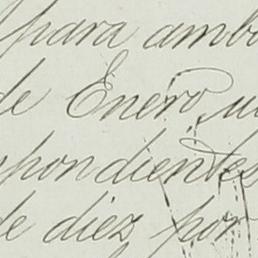 para amb
de Enero, u
pondientes
de diez por